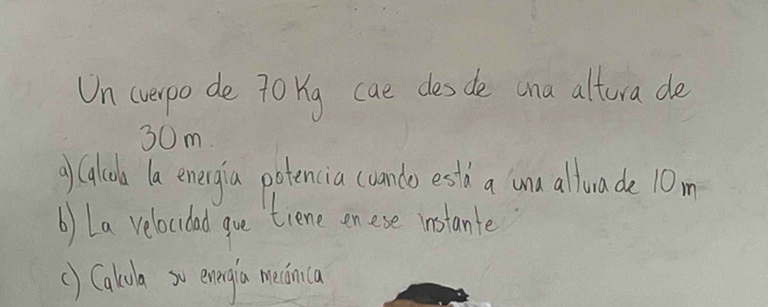 Un cuerpo de 70 Kg cae desde una altura de
30 m.
a) Calcula la energía potencia cuando está a una altura de 10 m
b) La velocidad que tiene en ese instante
c) Calcula su energía mecánica